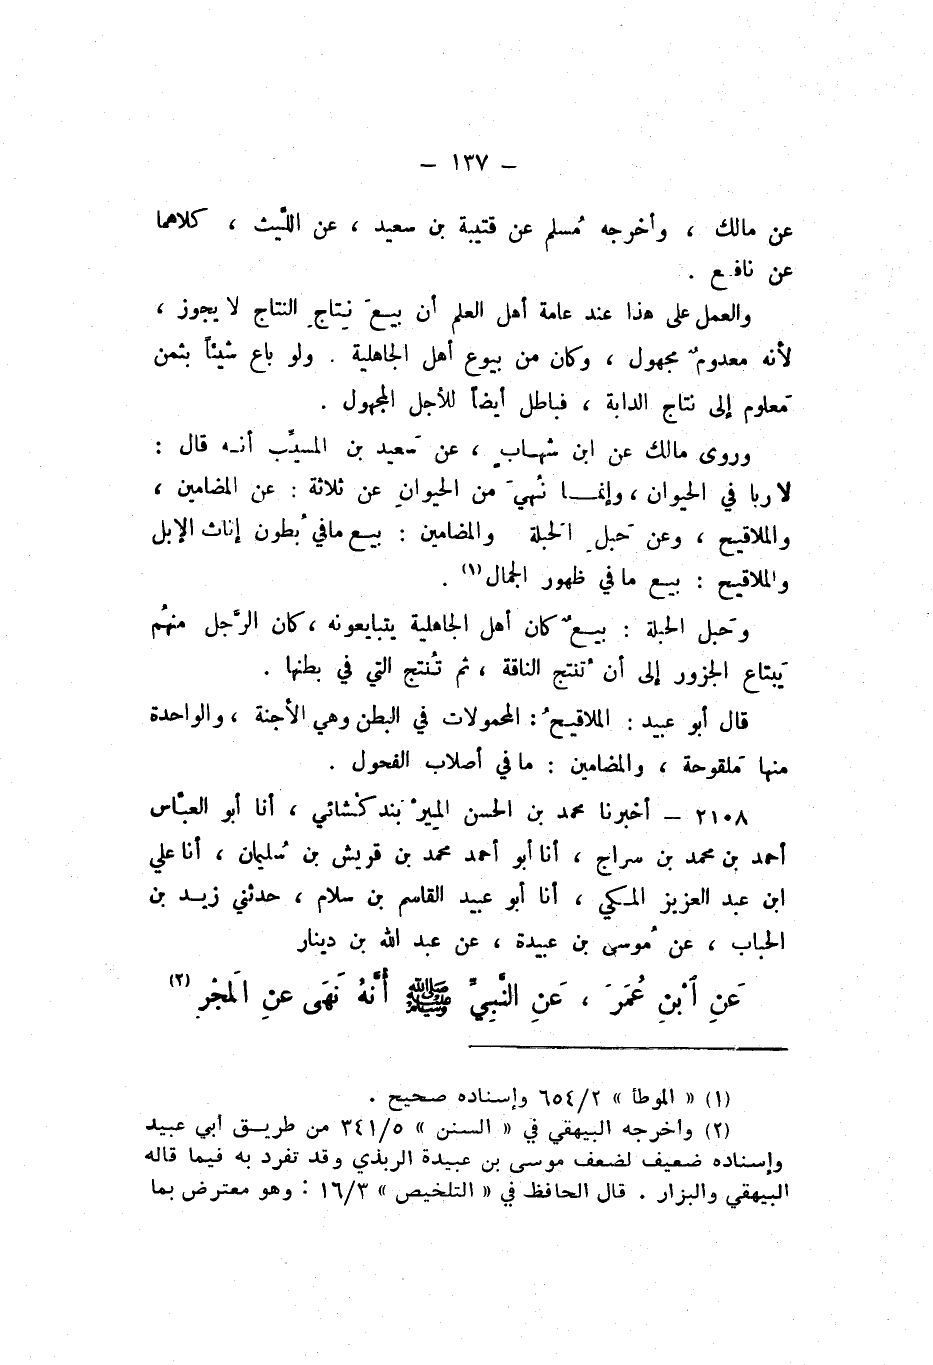 – ١٣٧ –
عن مالك ، وأخرجه مُسلم عن قتيبة بن سعيد ، عن اللَّيث ، كلاهما
عن نافع .
والعمل على هذا عند عامة أهل العلم أن بيعَ نِتاجِ النتاج لا يجوز ،
لأنه معدومٌ مجهول ، وكان من بيوع أهل الجاهلية . ولو باع شيئاً بثمن
مَعلوم إلى نتاج الدابة ، فباطل أيضاً للأجل المجهول .
وروى مالك عن ابن شهابٍ ، عن سَعيد بن المسيِّب أنه قال :
لا ربا في الحيوان ، وإنمـا نُهيَ من الحيوانِ عن ثلاثة : عن المضامين ،
والملاقيح ، وعن حَبلِ الحَبلة والمضامين : بيع ما في بُطون إناث الإبل
والملاقيح : بيع ما في ظهور الجمال(١) .
وحَبل الحبلة : بيعٌ كان أهل الجاهلية يتبايعونه ، كان الرَّجل منهُم
يَبتاع الجزور إلى أن تُنتج الناقة ، ثم تُنتج التي في بطنها .
قال أبو عبيد : الملاقيحُ : المحمولات في البطن وهي الأجنة ، والواحدة
منها مَلقوحة ، والمضامين : ما في أصلاب الفحول .
٢١٠٨ – أخبرنا محمد بن الحسن الميرْبَندكُشائي ، أنا أبو العبَّاس
أحمد بن محمد بن سراج ، أنا أبو أحمد محمد بن قريش بن سُليمان ، أنا علي
ابن عبد العزيز المكي ، أنا أبو عبيد القاسم بن سلام ، حدثني زيد بن
الحباب ، عن مُوسى بن عبيدة ، عن عبد الله بن دينار
عَنِ ابْنِ عُمَرَ ، عَنِ النَّبِيِّ ﷺ أَنَّهُ نَهَى عنِ المَجْرِ (٢)
(١) « الموطأ » ٦٥٤/٢ وإسناده صحيح .
(٢) وأخرجه البيهقي في « السنن » ٣٤١/٥ من طريق أبي عبيد
وإسناده ضعيف لضعف موسى بن عبيدة الربذي وقد تفرد به فيما قاله
البيهقي والبزار . قال الحافظ في « التلخيص » ١٦/٣ : وهو معترض بما